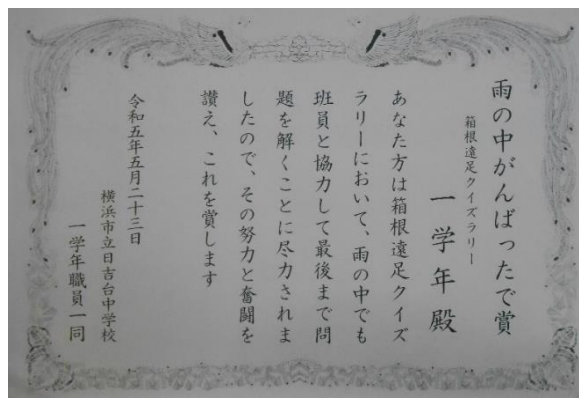 雨の中がんばったで賞
箱根遠足クイズラリー
一学年殿
あなた方は箱根遠足クイズ
ラリーにおいて、雨の中でも
班員と協力して最後まで問
題を解くことに尽力されま
したので、その努力と奮闘を
讃え、これを賞します
令和五年五月二十三日
横浜市立日吉台中学校
一学年職員一同